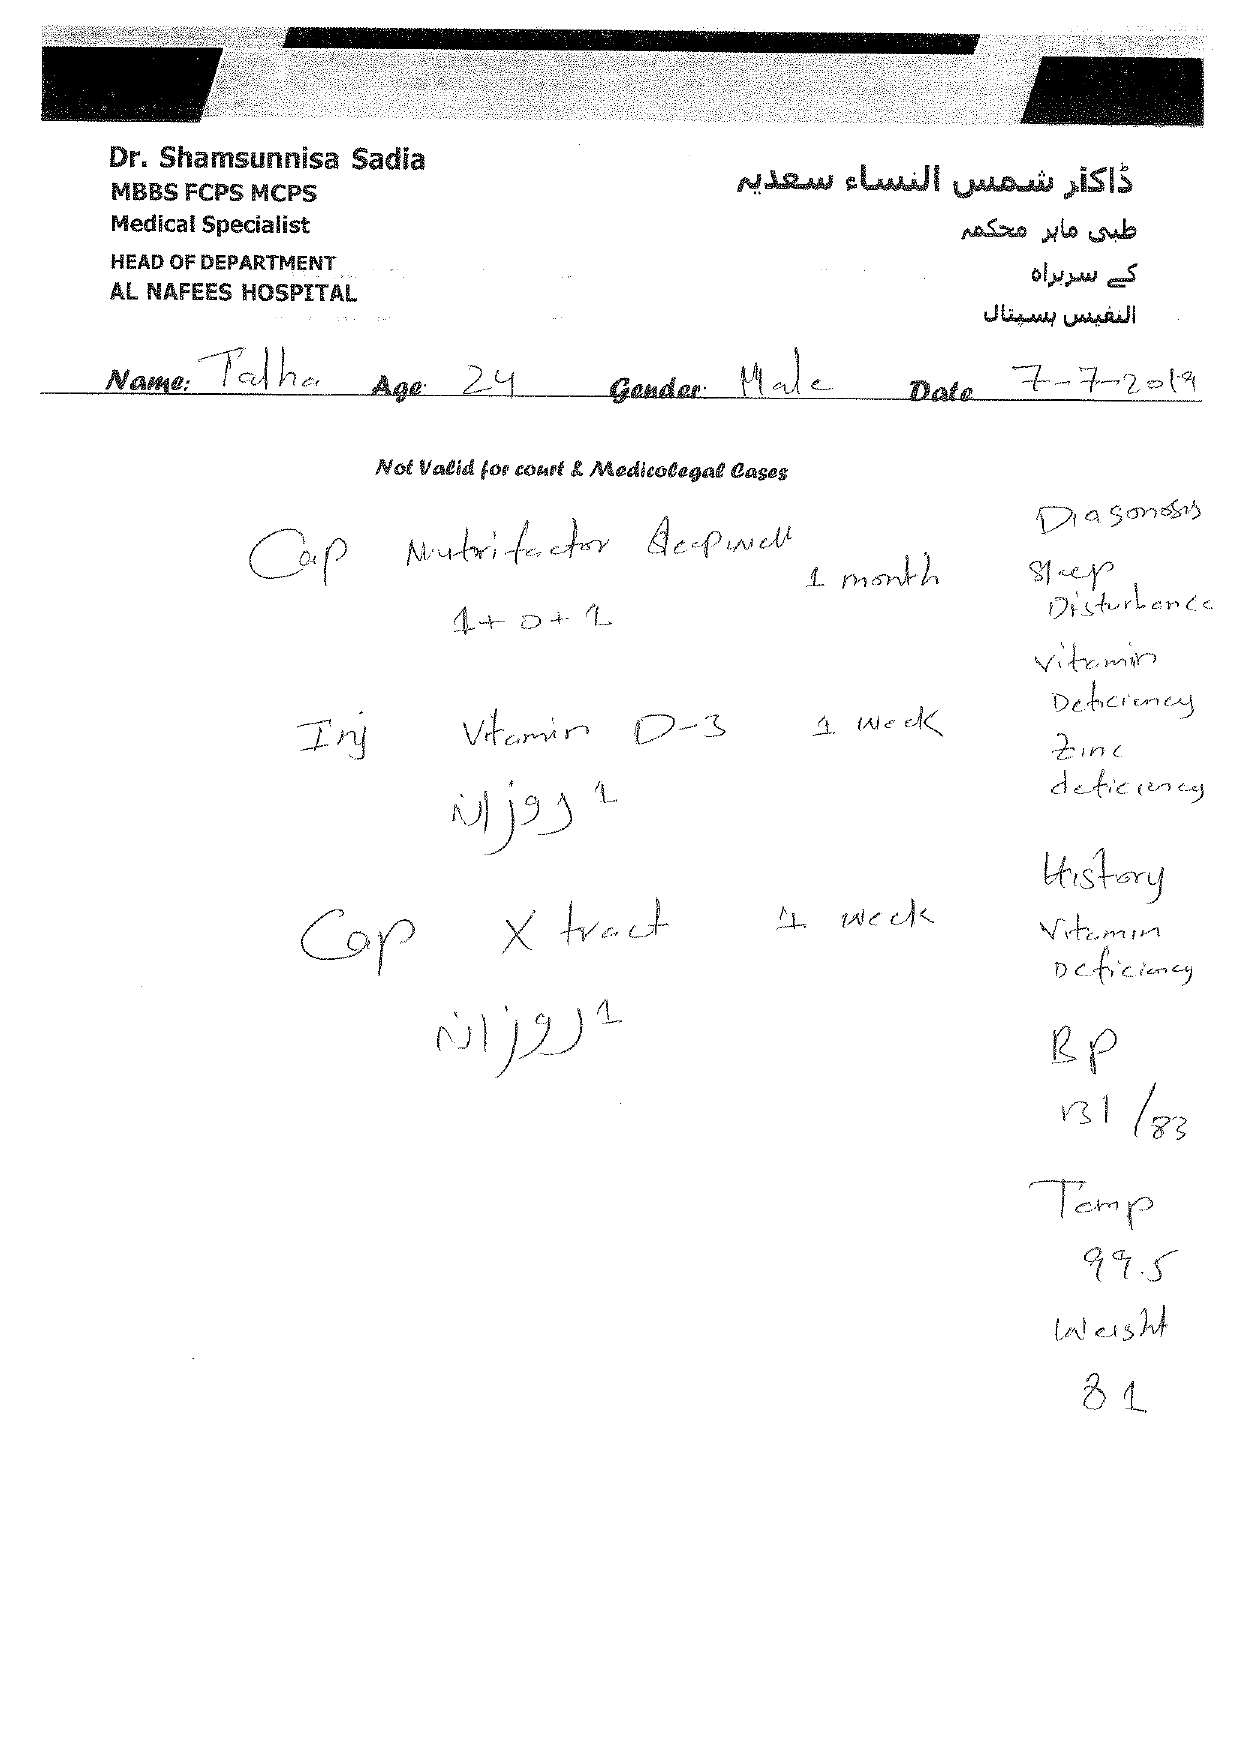 Dr. Shamsunnisa Sadia
MBBS FCPS MCPS
Medical Specialist
HEAD OF DEPARTMENT
AL NAFEES HOSPITAL
ڈاکٹر شمس النساء سعدیہ
طبی ماہر محکمہ
کے سربراہ
النفیس ہسپتال
Name: Talha Age: 24 Gender: Male Date 7-7-2019
Not Valid for court & Medicolegal Cases
Cap Nutrifactor Sleepwell 1 month
1+0+1
Inj Vitamin D-3 1 week
1 روزانہ
Cap Xtract 1 week
1 روزانہ
Diagonosis
Sleep
Disturbance
Vitamin
Deficiency
Zinc
deficiency
History
Vitamin
Deficiency
BP
131/83
Temp
99.5
Weight
81